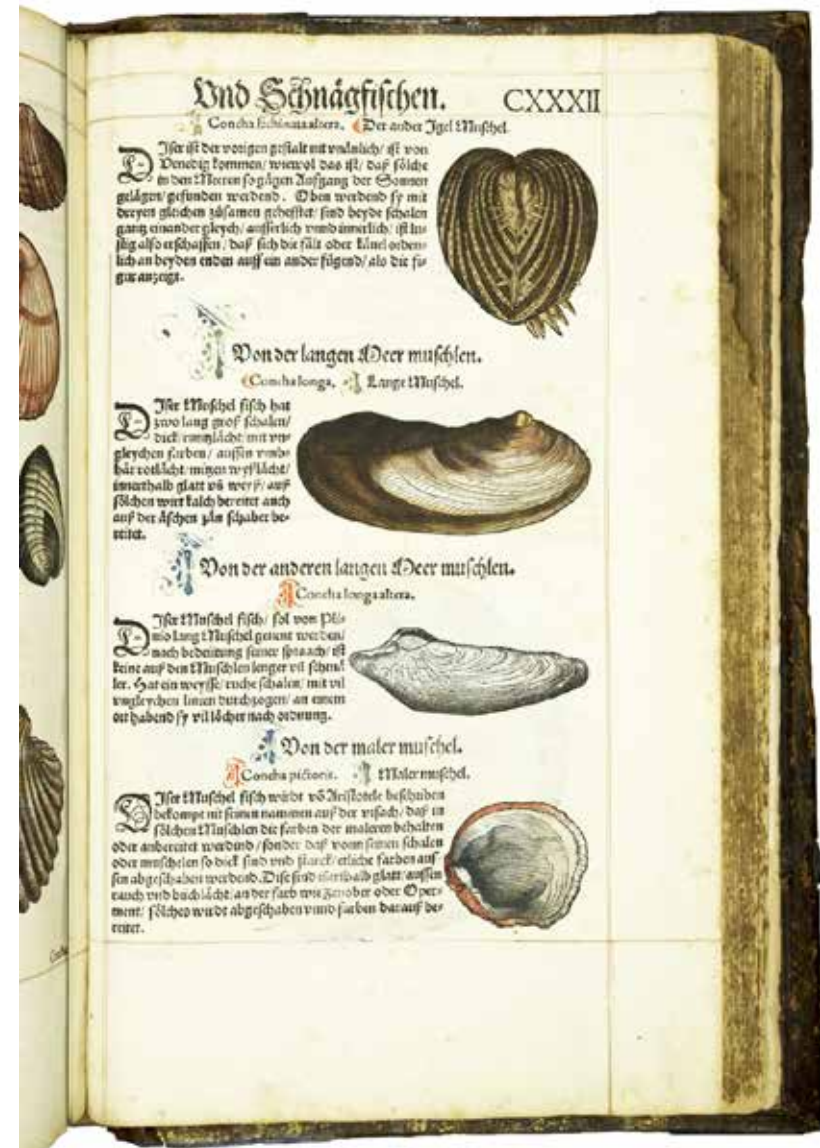 Vnd Schnägfischen. CXXXII
Concha Echinata altera. Der ander Igel Muschel
DIser ist der vorigen gestalt nit vnänlich/ ist von
Venedig kommen/ wiewol das ist/ daß sölche
in den Meeren so gägen Aufgang der Sonnen
gelägen/ gefunden werdend. Oben werdend sy mit
deryen gleichen zůsamen gehefftet/ sind beyde schalen
gantz einander gleych/ ausserlich vnnd innerlich/ ist lu-
stig also erschaffen/ daß sich die fält oder känel orden-
lich an beyden enden auff ein ander fügend/ als die fi-
gur anzeigt.
Von der langen Meer muschlen.
Concha longa. Lange Muschel.
DIser Muschel fisch hat
zwo lang groß schalen/
dick/ runtzlächt/ mit vn-
gleychen farben/ aussen vmb-
här rotlächt/ mitzen wyßlächt/
innerthalb glatt vñ weyß/ auß
sölchen wirt kalch bereitet auch
auß der äschen zän schaber be-
reitet.
Von der anderen langen Meer muschlen.
Concha longa altera.
DIser Muschel fisch/ sol von Pli-
nio lang Muschel genent werden/
nach bedeütung seiner spraach/ ist
keine auß den Muschlen lenger vil schmä
ler. Hat ein weysse/ ruche schalen/ mit vil
vngleychen linien durchzogen/ an einem
ort habend sy vil löcher nach ordnung.
Von der maler muschel.
Concha pictoris. Maler muschel.
DIser Muschel fisch wirdt võ Aristotele beschriben
bekompt nit seinen nammen auß der vrsach/ daß in
sölchen Muschlen die farben der maleren behalten
oder anbereitet werdind/ sonder daß vonn seinen schalen
oder muschelen so dick sind vnd starck/ etliche farben aus
sen abgeschaben werdend. Dise sind innerthalb glatt/ aussen
rauch vnd buchlächt/ an der farb wie Zinober oder Oper-
ment/ sölches wirdt abgeschaben vnnd farben darauß be-
reitet.